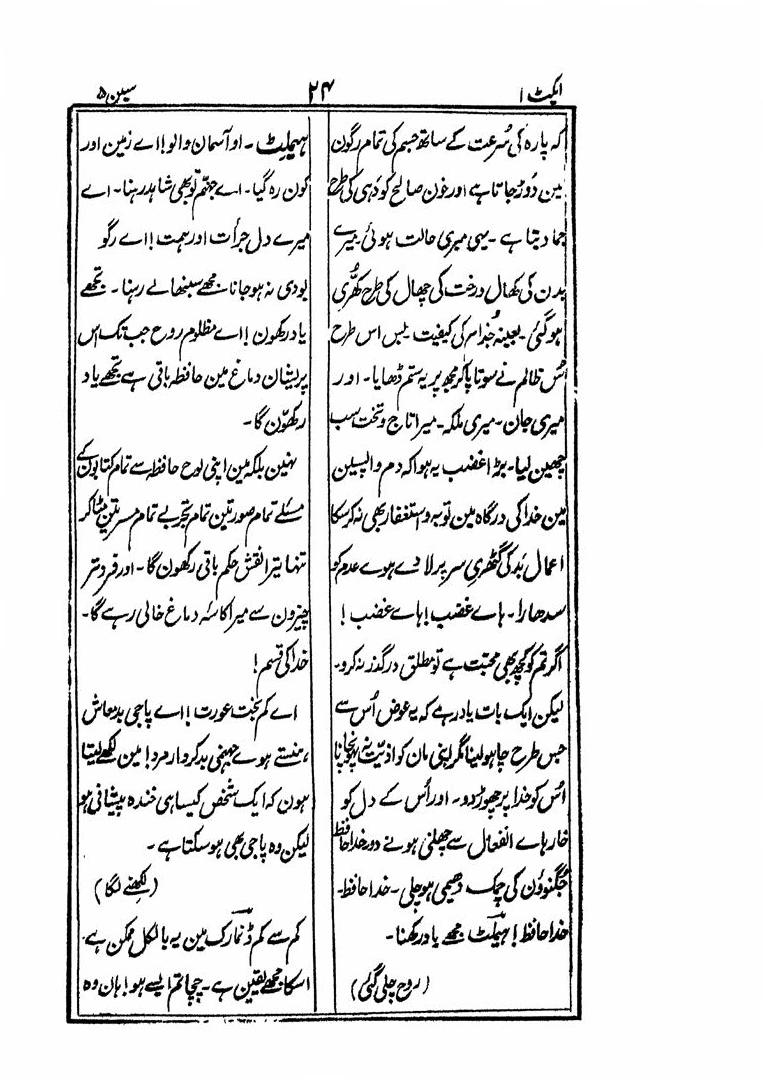 ایکٹ ۱
۲۴
سین ۵
کہ پارہ کی سُرعت کے ساتھ جسم کی تمام رگون
مین دوڑ جاتا ہے اور خون صالح کو دہی کی طرح
جما دیتا ہے ۔ یہی میری حالت ہوئی میرے
بدن کی کھال درخت کی چھال کی طرح کھُرّی
ہو گئی ۔ بعینہٖ جُذام کی کیفیت ۔ بس اس طرح
اُس ظالم نے سوتا پا کر مجھ پر یہ ستم ڈھایا ۔ اور
میری جان ۔ میری ملکہ ۔ میرا تاج و تخت سب
چھین لیا ۔ بڑا غضب یہ ہوا کہ دم واپسین
مین خدا کی درگاہ مین توبہ و استغفار بھی نہ کر سکا
اعمال بد کی گٹھری سر پر لادے ہوے عدم کو
سدھارا ۔ ہاے غضب! ہاے غضب!
اگر تم کو کچھ بھی محبت ہے تو مطلق درگذر نہ کرو ۔
لیکن ایک بات یاد رہے کہ یہ عوض اُس سے
جس طرح چاہو لینا مگر اپنی مان کو اذیّت نہ پہونچانا
اُس کو خدا پر چھوڑ دو ۔ اور اُس کے دل کو
خارہاے انفعال سے چھلنی ہونے دو ۔ خدا حافظ
جُگنوؤن کی چمک دھیمی ہو چلی ۔ خدا حافظ ۔
خدا حافظ! ہیملٹ مجھے یاد رکھنا ۔
(روح چلی گئی)
ہیملٹ ۔ او آسمان والو! اے زمین اور
کون رہ گیا ۔ اے جہنّم تو بھی شاہد رہنا ۔ اے
میرے دل جرأت اور ہمت! اے رگو
بودی نہ ہو جانا مجھے سنبھالے رہنا ۔ تجھے
یاد رکھون! اے مظلوم روح جب تک اس
پریشان دماغ مین حافظہ باقی ہے تجھے یاد
رکھّون گا ۔
نہین بلکہ مین اپنی لوح حافظہ سے تمام کتابون کے
مسئلے تمام صورتین تمام تجربے تمام مسرتین مٹا کر
تنہا تیرا نقش حکم باقی رکھون گا ۔ اور فروتر
چیزون سے میرا کاسۂ دماغ خالی رہے گا ۔
خدا کی قسم!
اے کم بخت عورت! اے پاجی بدمعاش
ہنستے ہوے جہنمی بدکردار مرد! مین لکھے لیتا
ہون کہ ایک شخص کیسا ہی خندہ پیشانی ہو
لیکن وہ پاجی بھی ہو سکتا ہے ۔
(لکھنے لگا)
کم سے کم ڈنمارک مین یہ بالکل ممکن ہے
اسکا مجھے یقین ہے ۔ چچا تم ایسے ہو! ہان وہ